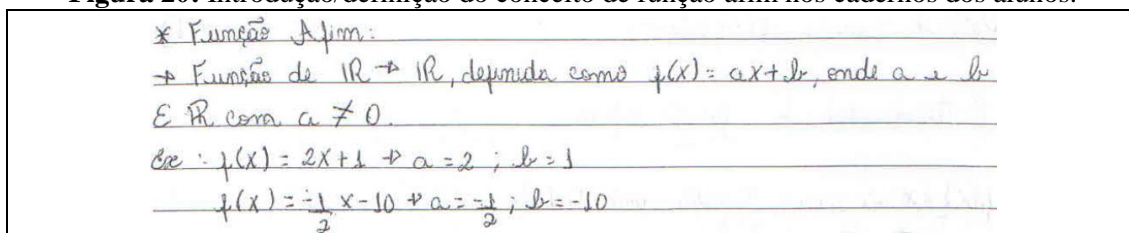 Figura 20: Introdução/definição do conceito de função afim nos cadernos dos alunos.
* Função Afim:
→ Função de IR → IR, definida como f(x) = ax+b, onde a e b
E IR com a ≠ 0.
Ex : f(x) = 2x+1 → a = 2 ; b = 1
f(x) = -1/2 x - 10 → a = -1/2 ; b = -10